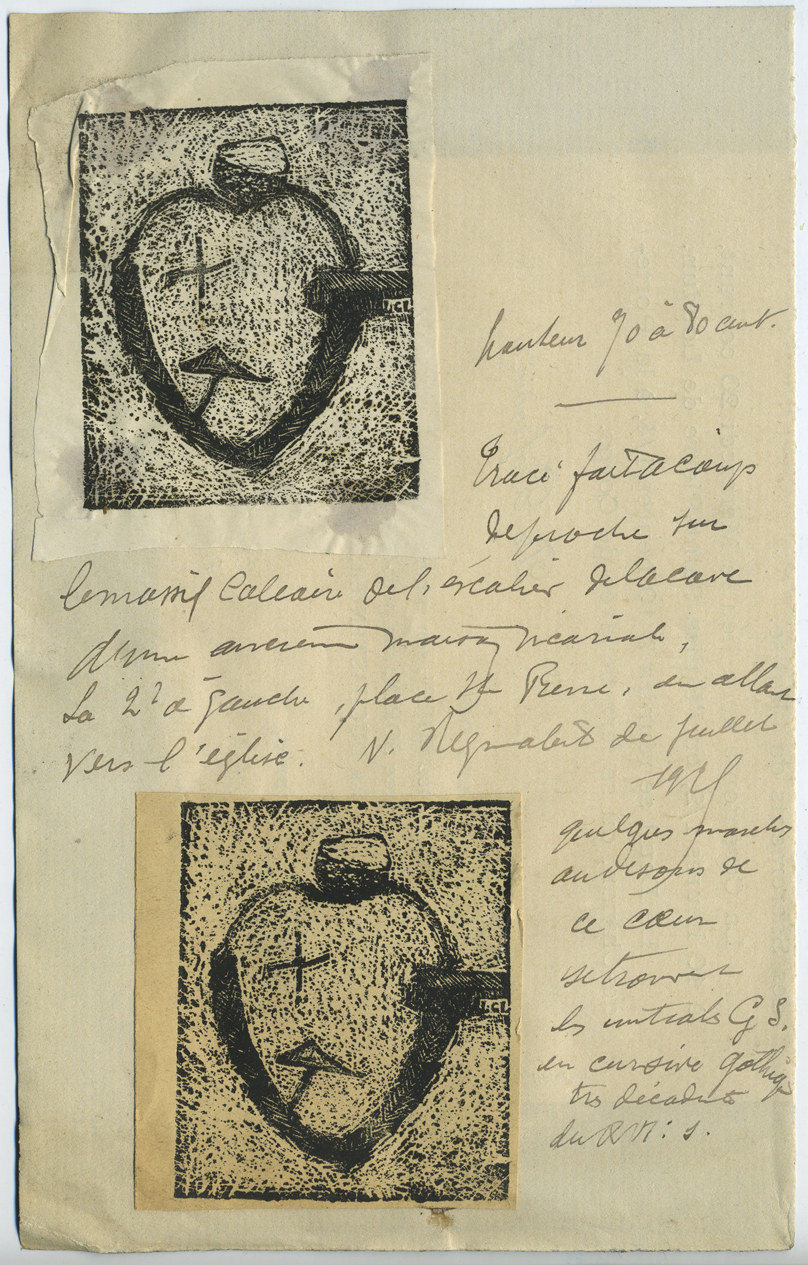 hauteur 70 à 80 cent.
Tracé fait à coups
de broche sur
le massif calcaire de l'escalier de la cave
d'une ancienne maison vicariale,
La 2e à gauche, place St Pierre, en allant
vers l'église. V. Regnabit de juillet
quelques marches
au dessous de
ce cœur
se trouvent
les initiales G S.
en cursive gothique
très décadente
du XVIe s.
LCL
LCL